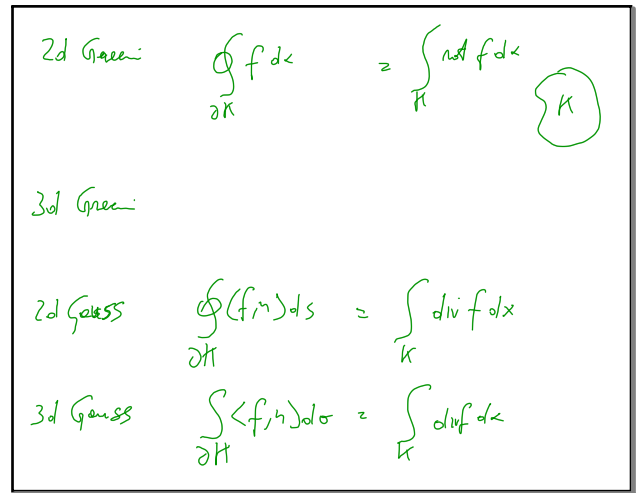 2d Green ∮_{∂K} f dx = ∫_K rot f dx
K
3d Green
2d Gauss ∮_{∂K} (f,n) ds = ∫_K div f dx
3d Gauss ∫_{∂K} <f,n> dσ = ∫_K div f dx